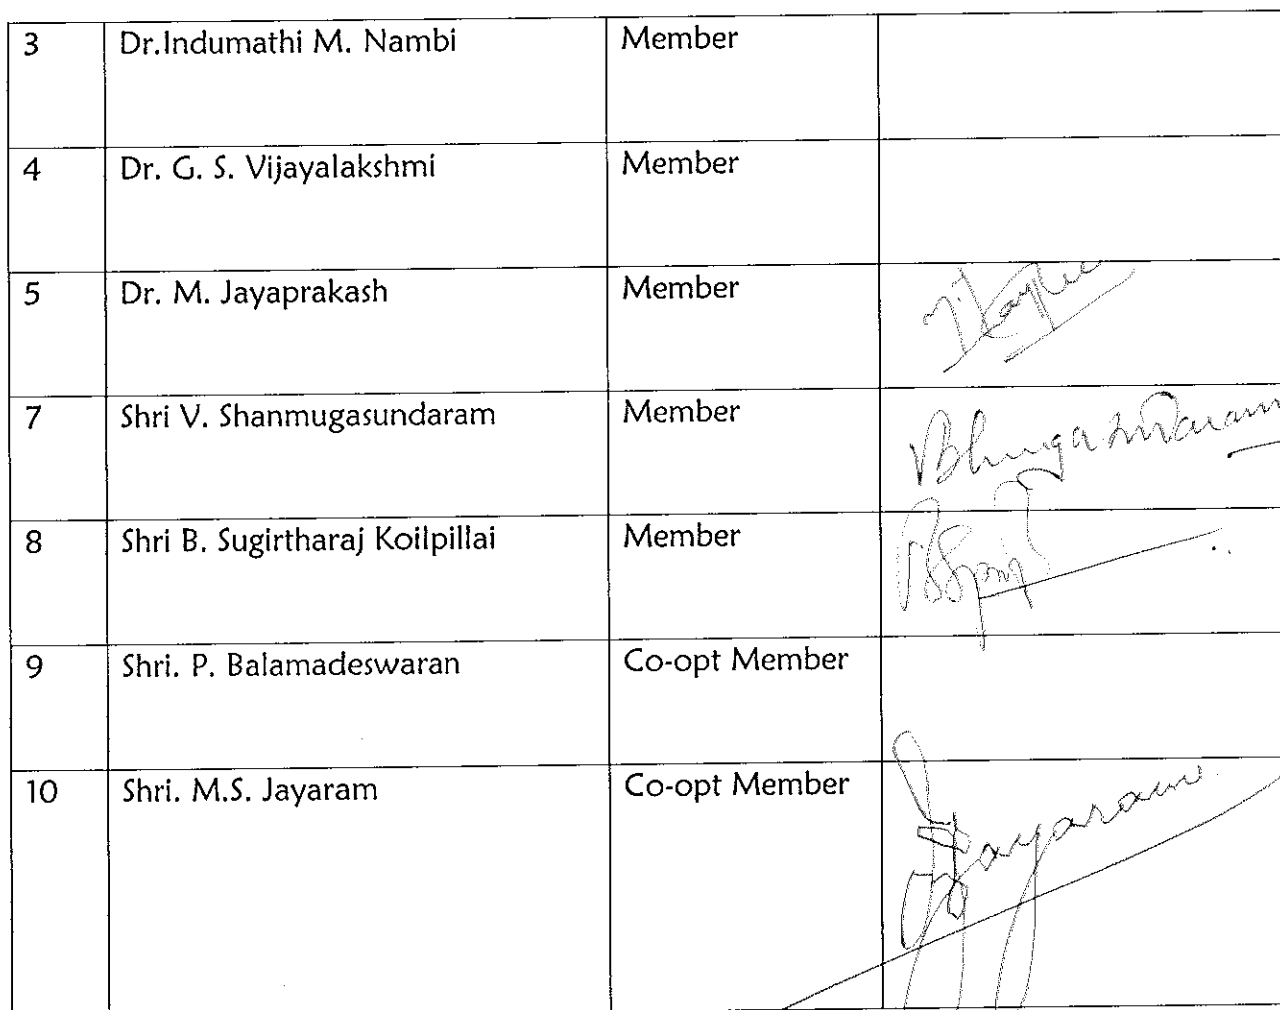 3 Dr.Indumathi M. Nambi Member
4 Dr. G. S. Vijayalakshmi Member
5 Dr. M. Jayaprakash Member
7 Shri V. Shanmugasundaram Member
8 Shri B. Sugirtharaj Koilpillai Member
9 Shri. P. Balamadeswaran Co-opt Member
10 Shri. M.S. Jayaram Co-opt Member
Jayaram